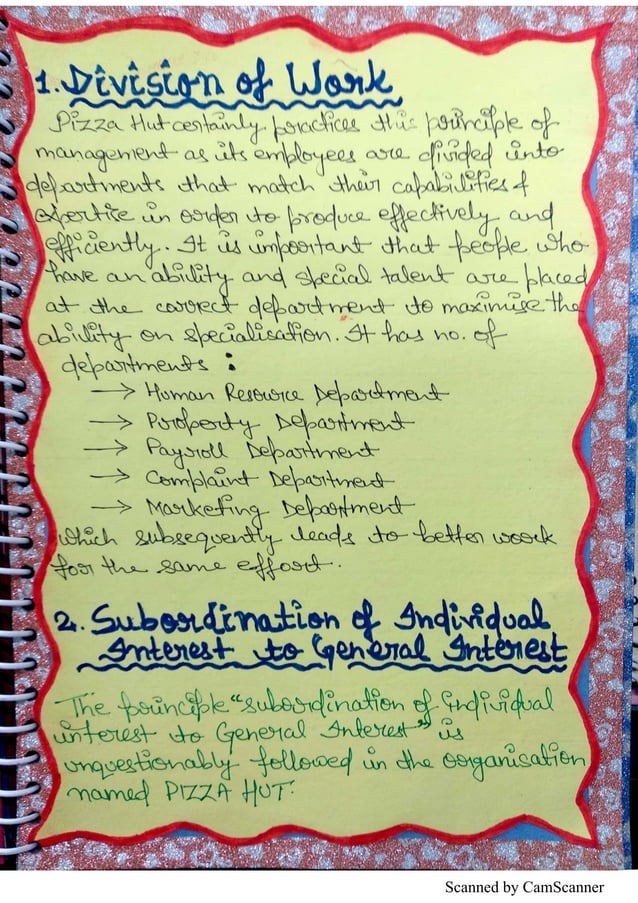 1. Division of Work
Pizza Hut certainly practices this principle of
management as its employees are divided into
departments that match their capabilities &
expertise in order to produce effectively and
efficiently. It is important that people who
have an ability and special talent are placed
at the correct department to maximise the
ability on specialisation. It has no. of
departments :
→ Human Resource Department
→ Property Department
→ Payroll Department
→ Complaint Department
→ Marketing Department
which subsequently leads to better work
for the same effort.
2. Subordination of Individual
Interest to General Interest
The principle "subordination of individual
interest to General Interest" is
unquestionably followed in the organisation
named PIZZA HUT.
Scanned by CamScanner